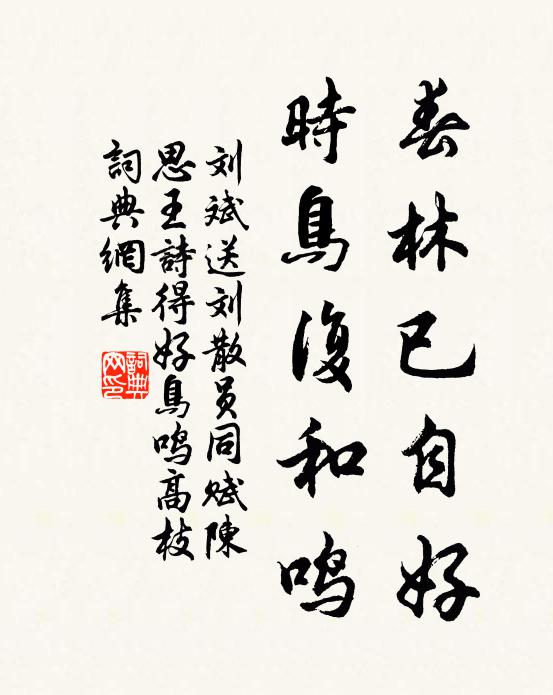 春林已自好
時鳥復和鳴
刘斌送刘散员同赋陳
思王詩得好鳥鸣高枝
詞典網集
詞典網印